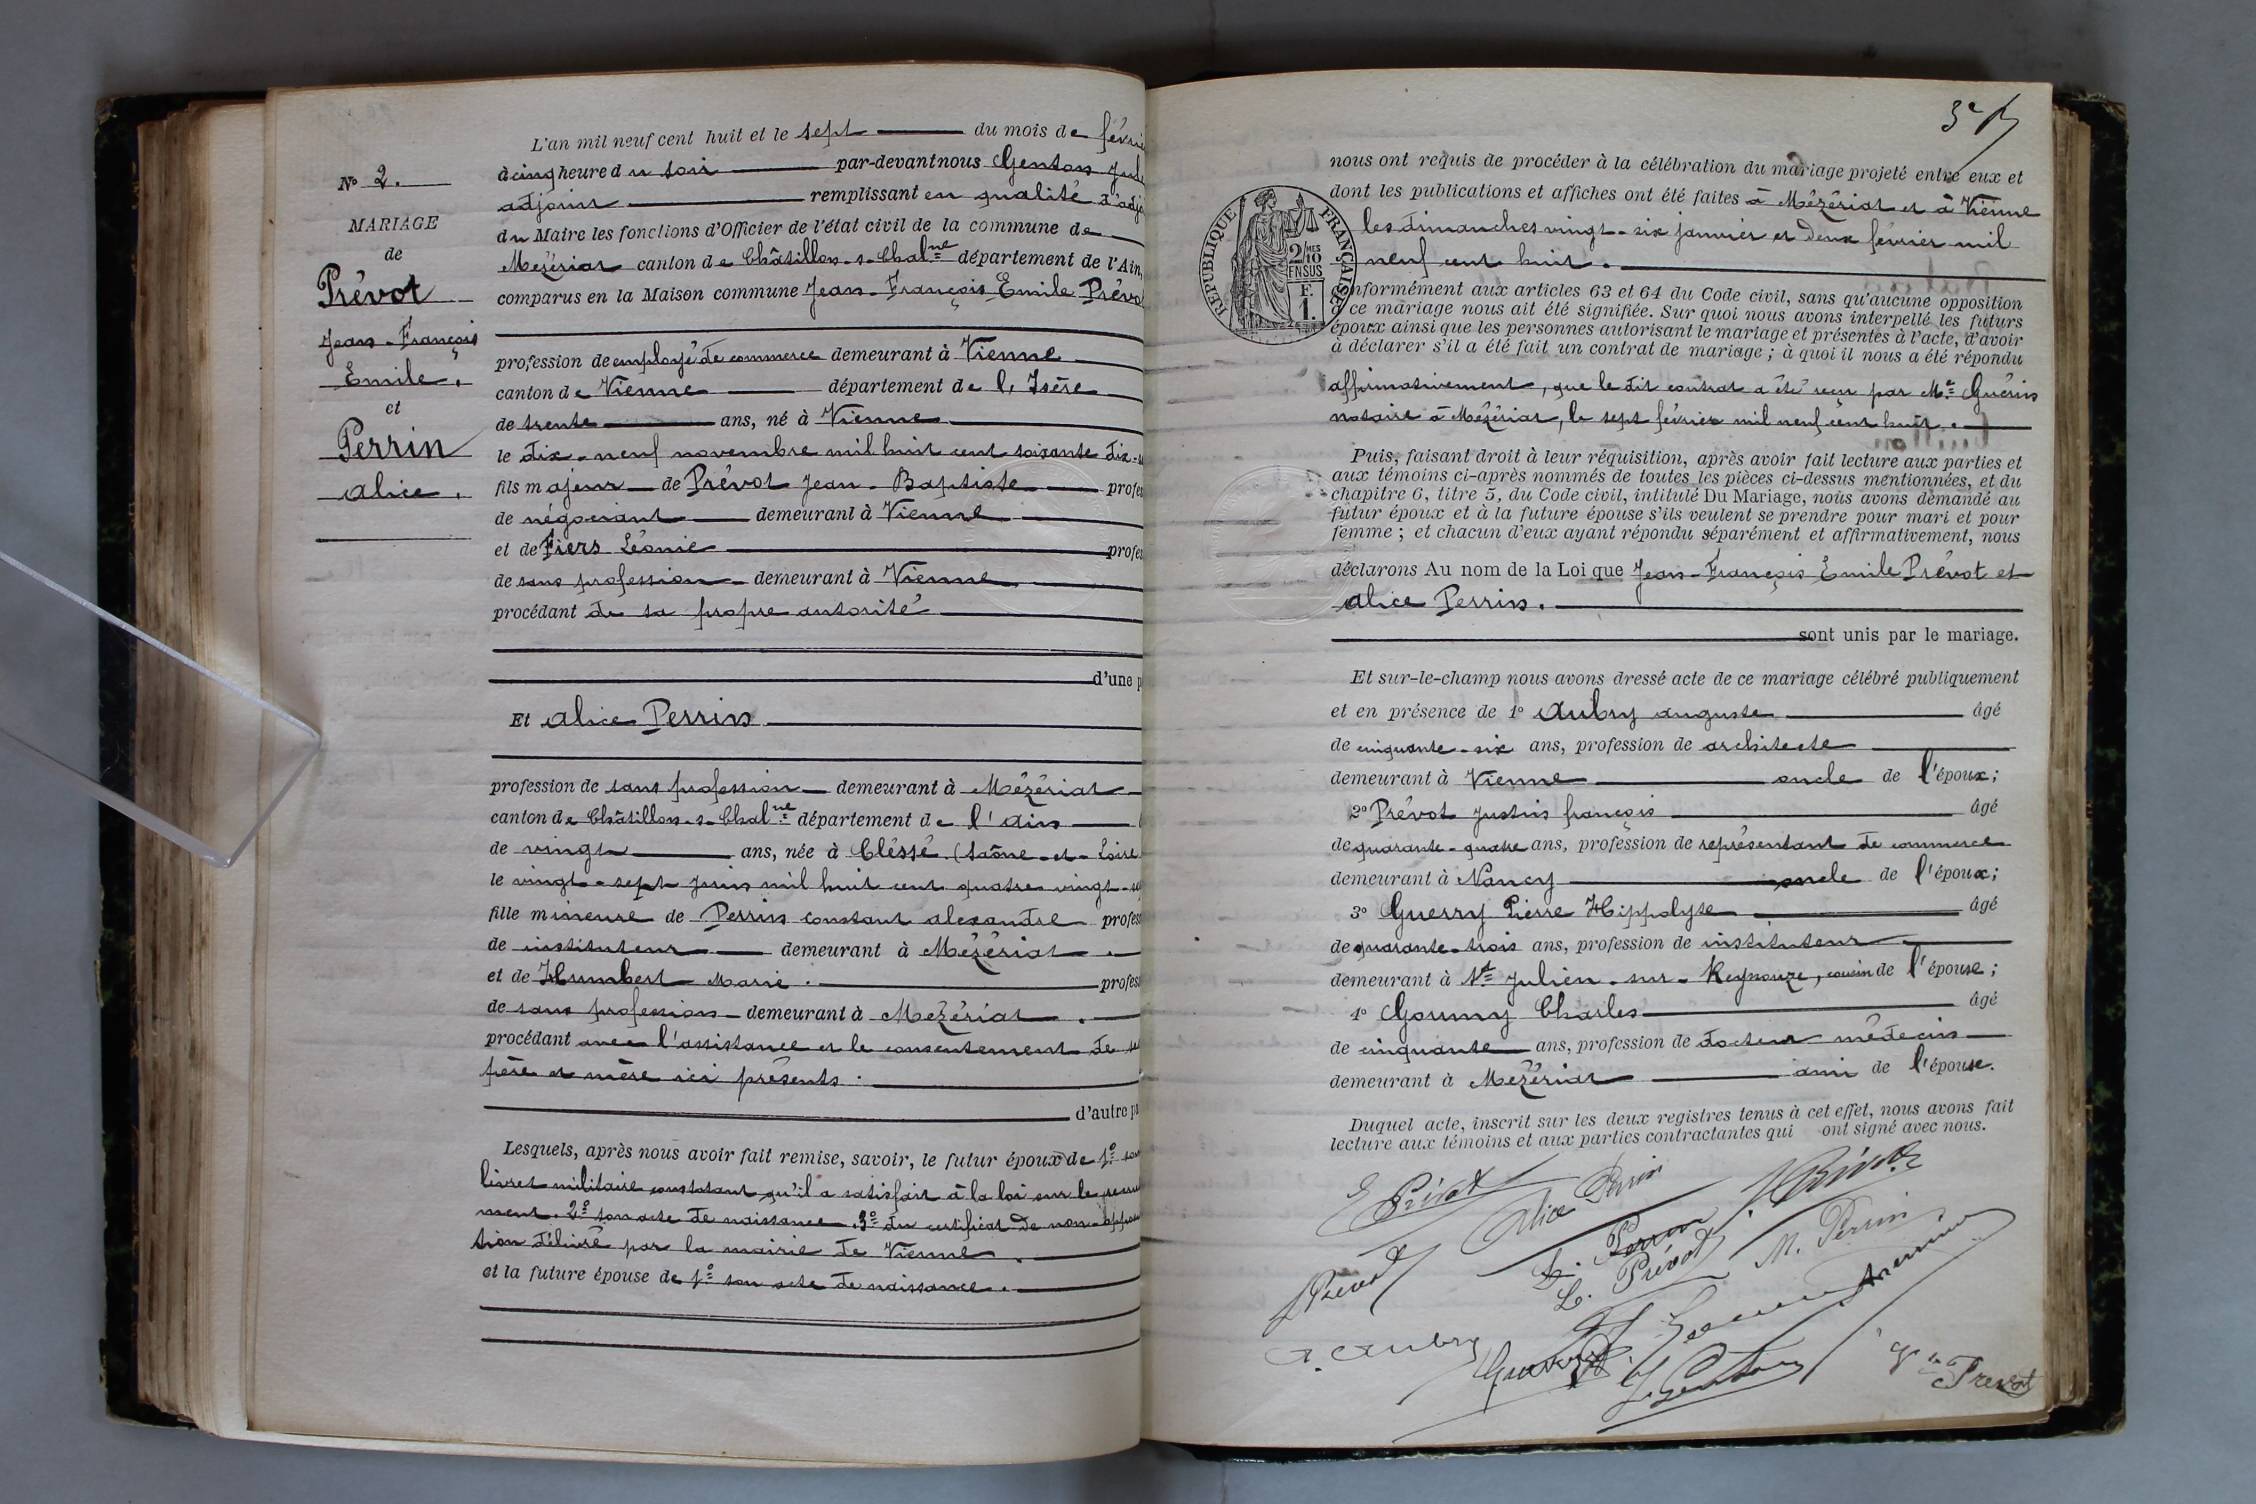 L'an mil neuf cent huit et le sept du mois de
à cinq heure du soir par-devant nous Genton
adjoint remplissant en qualité
du Maire les fonctions d'Officier de l'état civil de la commune de
Mézériat canton de Châtillon-s-Chal.ne département de l'Ain,
comparus en la Maison commune Jean-François Emile
profession de employé de commerce demeurant à Vienne
canton de Vienne département de l'Isère
de trente ans, né à Vienne
le dix-neuf novembre mil huit cent soixante dix-
fils majeur de Prévot Jean-Baptiste
de négociant demeurant à Vienne
et de Fiers Léonie
de sans profession demeurant à Vienne
procédant de sa propre autorité
d'une
Et Alice Perrin
profession de sans profession demeurant à Mézériat
canton de Châtillon-s-Chal.ne département de l'Ain
de vingt ans, née à Cléssé (Saône-et-Loire
le vingt-sept Juin mil huit cent quatre vingt-
fille mineure de Perrin Constant Alexandre
de instituteur demeurant à Mézériat.
et de Humbert Marie.
de sans profession demeurant à Mézériat.
procédant avec l'assistance et le consentement de
père et mère ici présents.
d'autre
Lesquels, après nous avoir fait remise, savoir, le futur époux de 1º
livret militaire constatant qu'il a satisfait à la loi sur le
ment. 2º son acte de naissance. 3º du certificat de non-
tion délivré par la mairie de Vienne.
et la future épouse de 1º son acte de naissance.
Nº 2.
MARIAGE
de
Prévot
Jean-François
Emile.
et
Perrin
Alice.
nous ont requis de procéder à la célébration du mariage projeté entre eux et
dont les publications et affiches ont été faites à Mézériat et à Vienne
les dimanches vingt-six janvier et deux février mil
neuf cent huit.
REPUBLIQUE FRANÇAISE
2/10 MES
EN SUS
F.
1.
nformément aux articles 63 et 64 du Code civil, sans qu'aucune opposition
à ce mariage nous ait été signifiée. Sur quoi nous avons interpellé les futurs
époux ainsi que les personnes autorisant le mariage et présentes à l'acte, d'avoir
à déclarer s'il a été fait un contrat de mariage ; à quoi il nous a été répondu
affirmativement, que le dit contrat a été reçu par Me Guérin
notaire à Mézériat, le sept février mil neuf cent huit.
Puis, faisant droit à leur réquisition, après avoir fait lecture aux parties et
aux témoins ci-après nommés de toutes les pièces ci-dessus mentionnées, et du
chapitre 6, titre 5, du Code civil, intitulé Du Mariage, nous avons demandé au
futur époux et à la future épouse s'ils veulent se prendre pour mari et pour
femme ; et chacun d'eux ayant répondu séparément et affirmativement, nous
déclarons Au nom de la Loi que Jean-François Emile Prévot et
Alice Perrin.
sont unis par le mariage.
Et sur-le-champ nous avons dressé acte de ce mariage célébré publiquement
et en présence de 1º Aubry Auguste âgé
de cinquante-six ans, profession de architecte
demeurant à Vienne oncle de l'époux;
2º Prévot Justin François âgé
de quarante-quatre ans, profession de représentant de commerce
demeurant à Nancy oncle de l'époux;
3º Guerry Pierre Hippolyte âgé
de quarante-trois ans, profession de instituteur
demeurant à St Julien-sur-Reyssouze, cousin de l'épouse;
4º Goumy Charles âgé
de cinquante ans, profession de docteur médecin
demeurant à Mézériat ami de l'épouse.
Duquel acte, inscrit sur les deux registres tenus à cet effet, nous avons fait
lecture aux témoins et aux parties contractantes qui ont signé avec nous.
E Prévot
Alice Perrin
C. Perrin
L. Prévot
M. Perrin
Prévot
A. Aubry
Guerry
J. Genton
Prevot